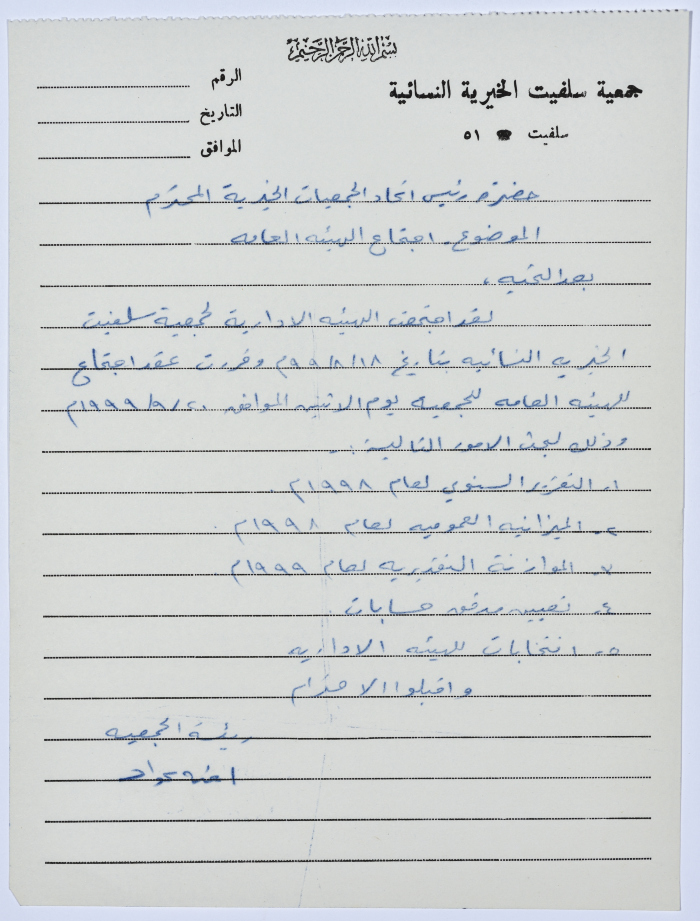 بسم الله الرحمن الرحيم
جمعية سلفيت الخيرية النسائية
سلفيت ٥١
الرقم
التاريخ
الموافق
حضرة رئيس اتحاد الجمعيات الخيرية المحترم
الموضوع. اجتماع الهيئه العامه
بعد التحيه،
لقد اجتمعت الهيئه الادارية لجمعية سلفيت
الخيريه النسائيه بتاريخ ٩٩/٨/١٨م وقررت عقد اجتماع
للهيئه العامه للجمعيه يوم الاثنين الموافق ١٩٩٩/٩/٢٠م
وذلك لبحث الامور التالية :-
١. التقرير السنوي لعام ١٩٩٨م.
٢. الميزانيه العموميه لعام ١٩٩٨م.
٣. الموازنة التقديريه لعام ١٩٩٩م.
٤. تعيين مدقق حسابات.
٥. انتخابات للهيئه الاداريه
واقبلوا الاحترام
رئيسة الجمعيه